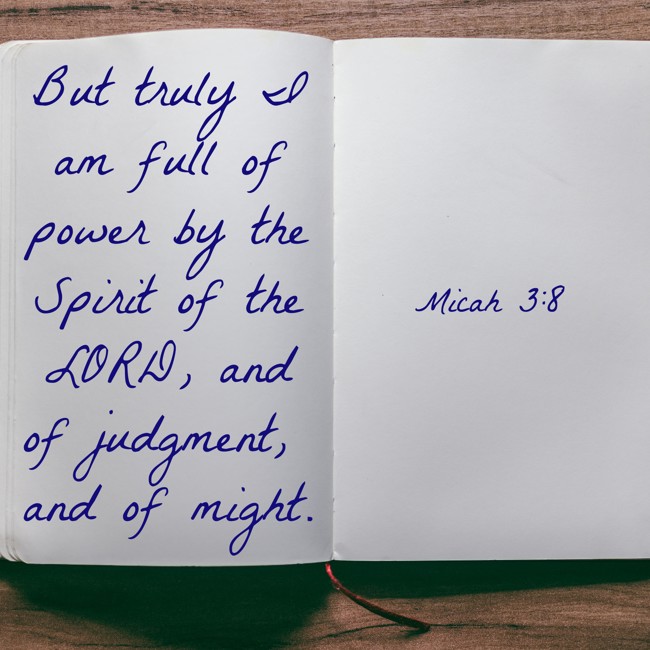 But truly I
am full of
power by the
Spirit of the
LORD, and
of judgment,
and of might.
Micah 3:8